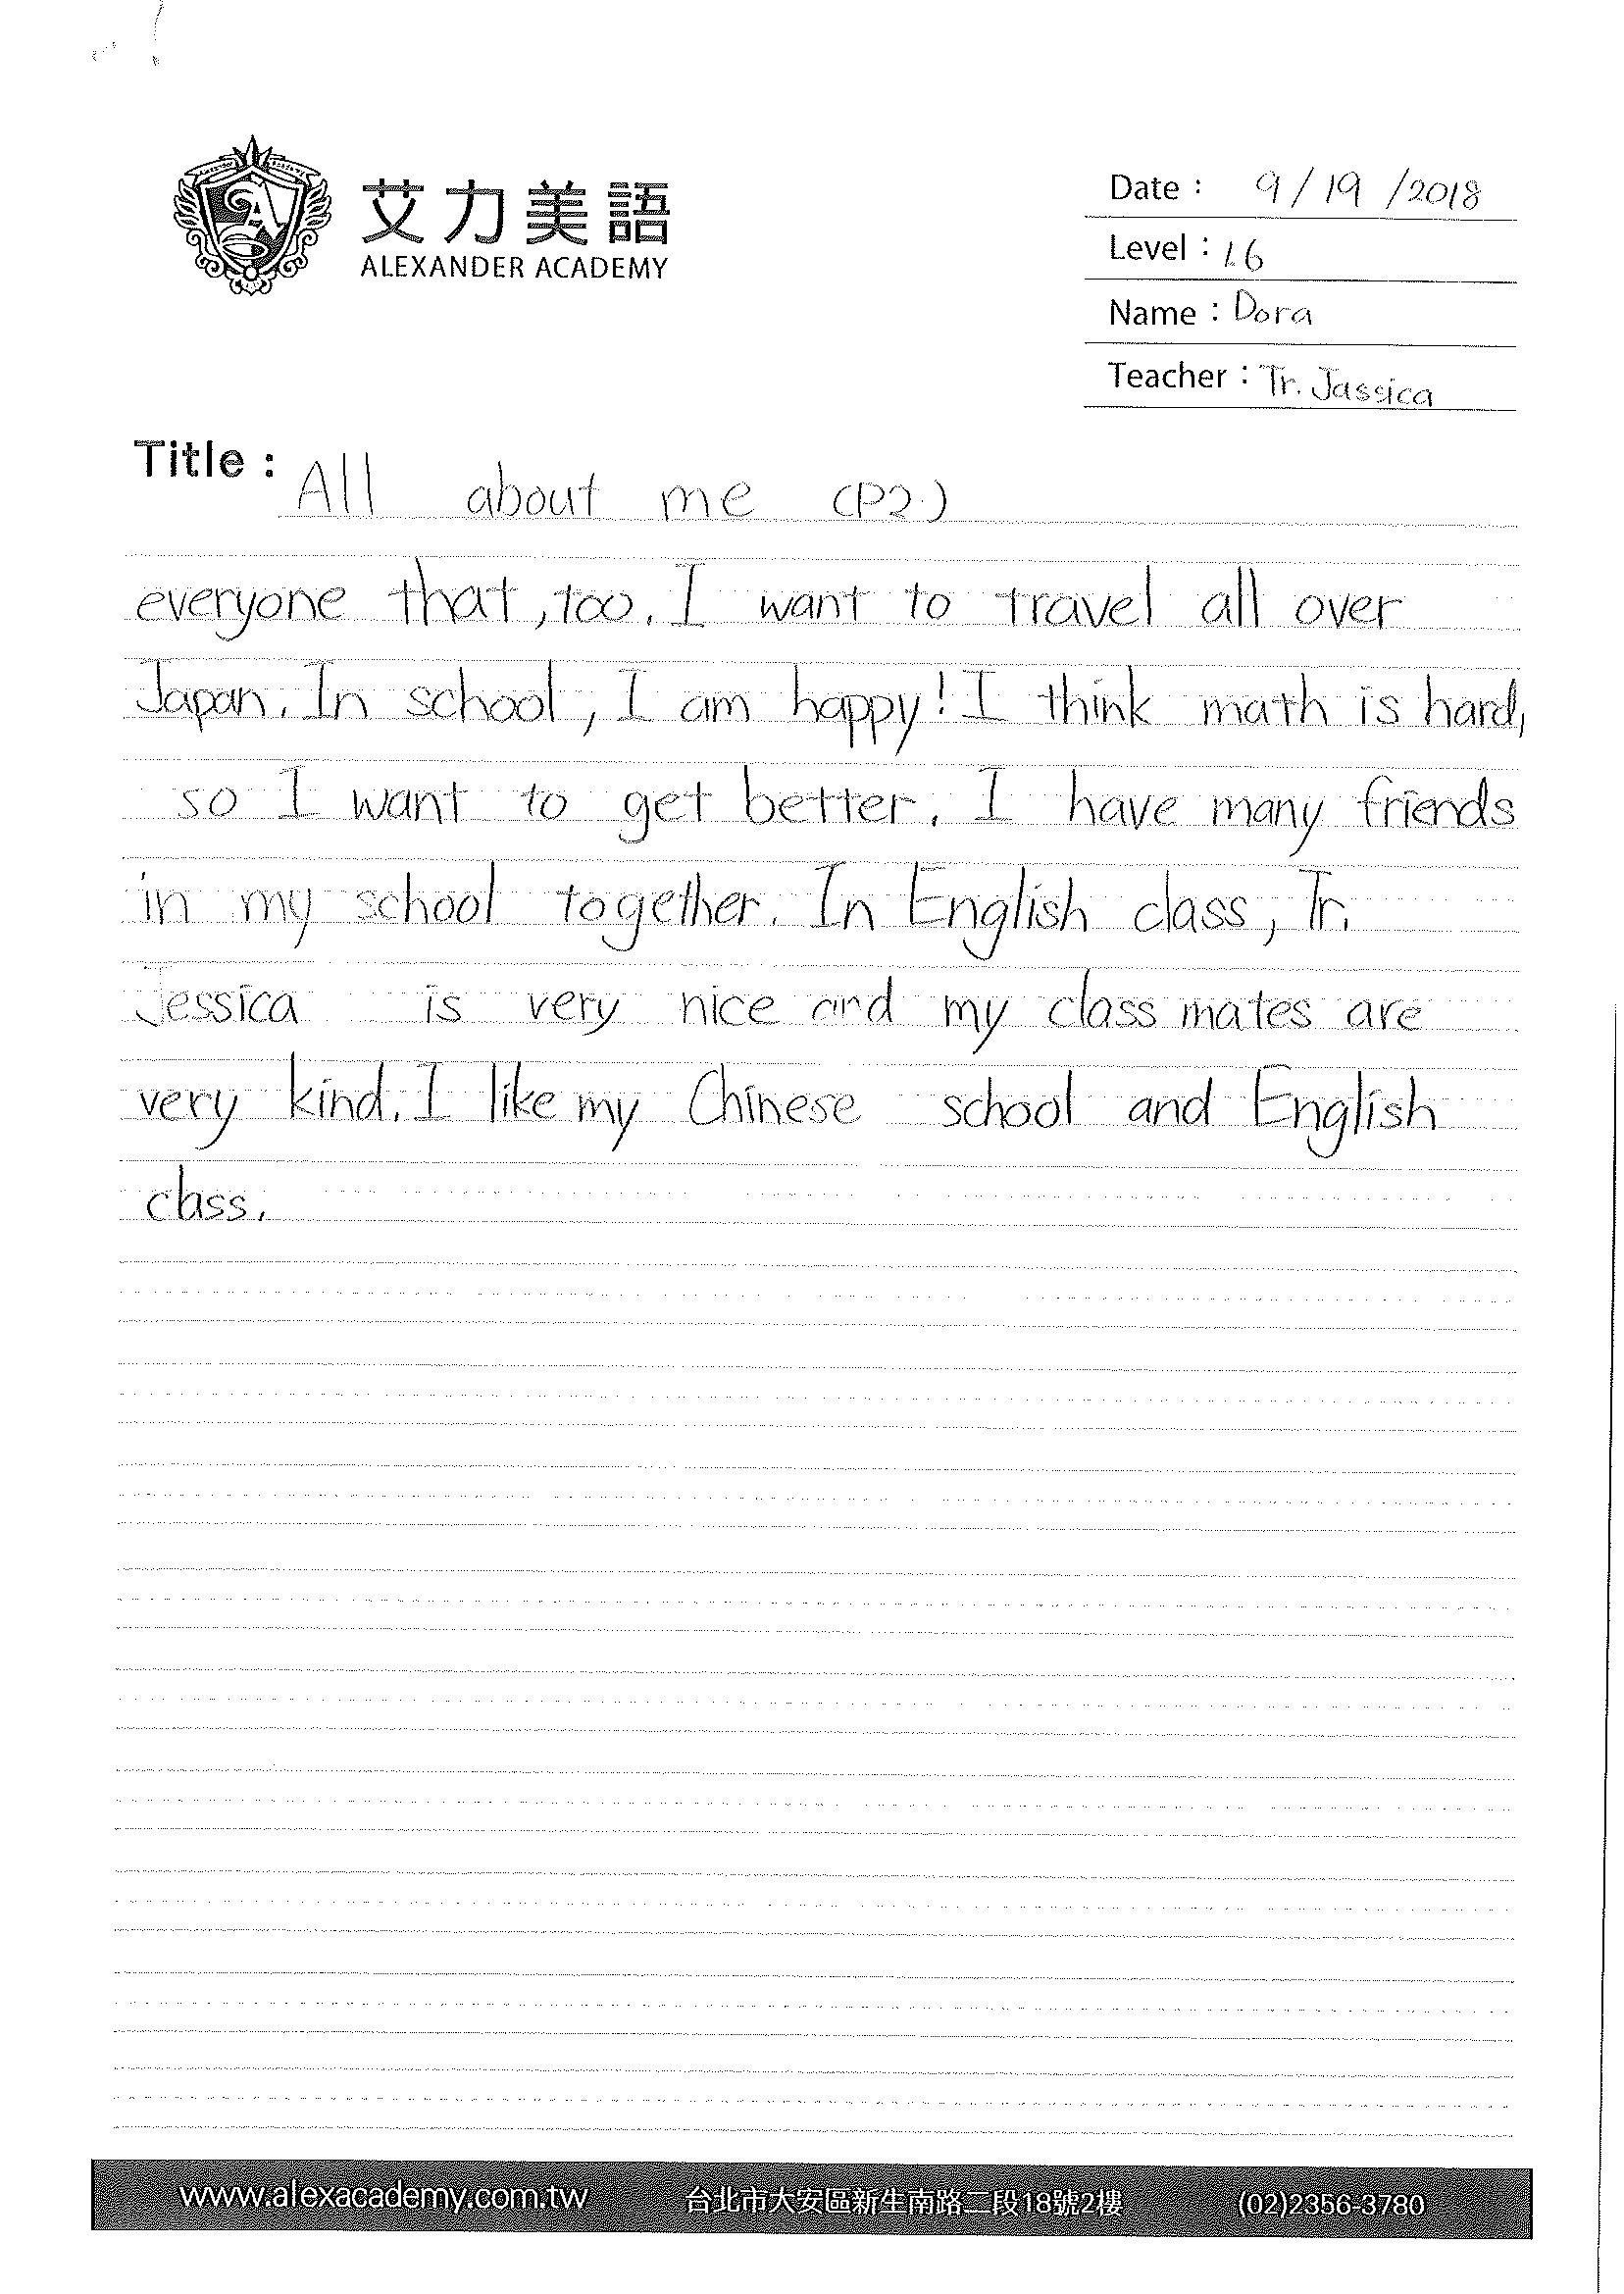 艾力美語
ALEXANDER ACADEMY
Date : 9/19/2018
Level : L6
Name : Dora
Teacher : Tr. Jassica
Title : All about me (P2.)
everyone that, too. I want to travel all over
Japan. In school, I am happy! I think math is hard,
so I want to get better. I have many friends
in my school together. In English class, Tr.
Jessica is very nice and my class mates are
very kind. I like my Chinese school and English
class.
www.alexacademy.com.tw 台北市大安區新生南路二段18號2樓 (02)2356-3780